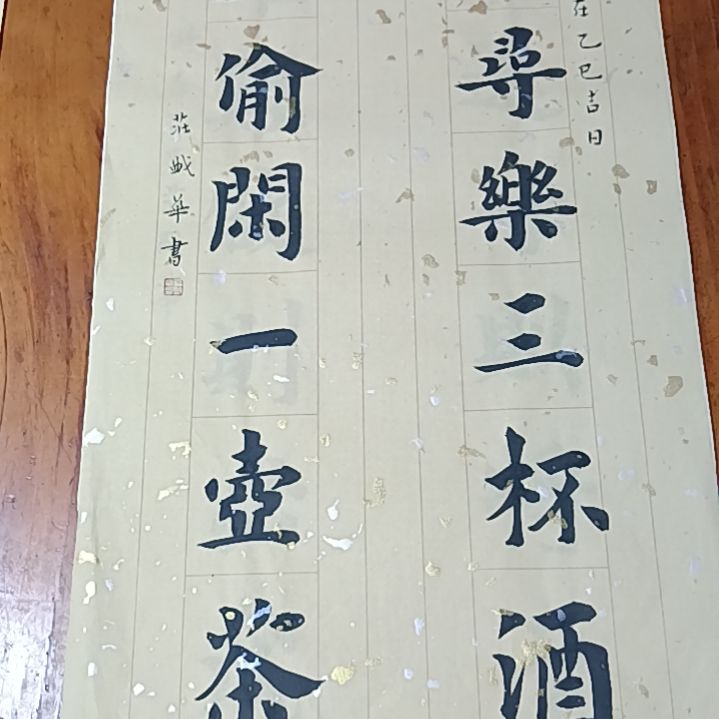 在乙巳吉日
尋樂三杯酒
偷閑一壺茶
莊戫華書